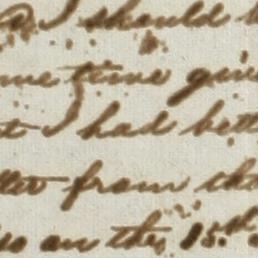 I should
me time give
t I had bett
from tha
on the 15th